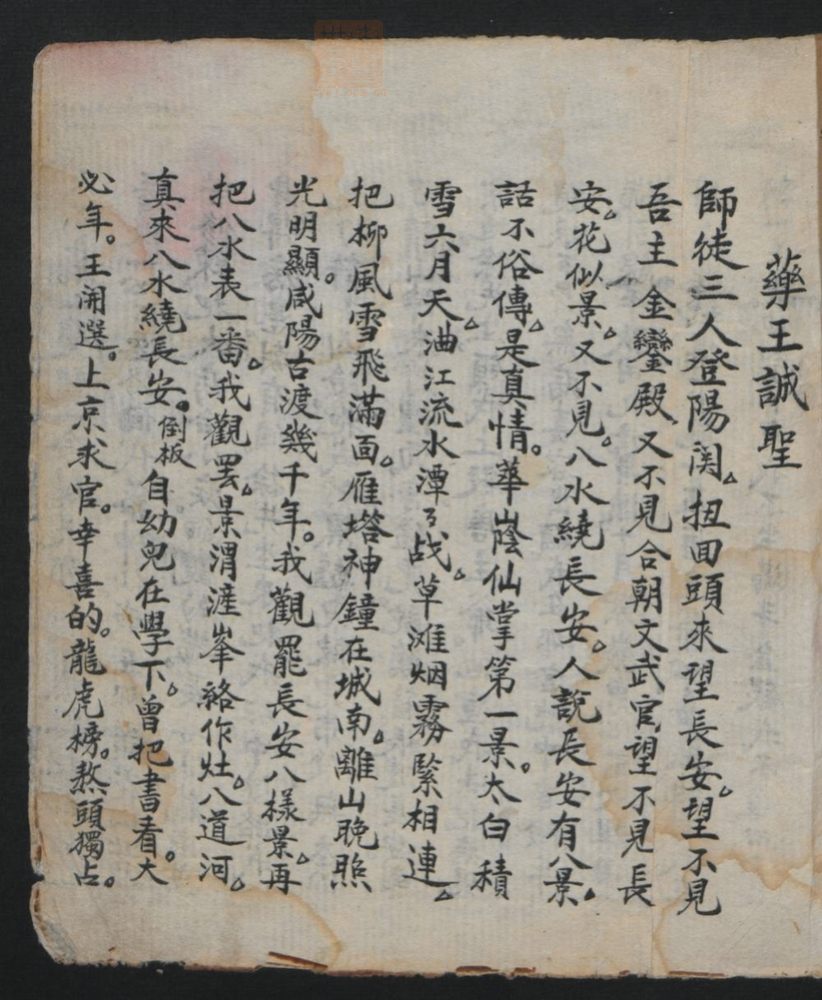 藥王誠聖
師徒三人登陽関。扭回頭來望長安。望不見
吾主金鑾殿。又不見合朝文武官。望不見長
安。花似景。又不見。八水繞長安。人說長安有八景。
話不俗傳。是真情。華蔭仙掌第一景。太白積
雪六月天。油江流水潭々战。草滩烟霧緊相連。
把柳風雪飛滿面。雁塔神鐘在城南。離山晚照
光明顯。咸陽古渡幾千年。我觀罷長安八樣景。再
把八水表一番。我觀罢。景渭滻峯絡作灶。八道河。
真來八水繞長安。倒板自幼兒在學下。曾把書看。大
必年。王開選。上京求官。幸喜的。龍虎榜。熬頭獨占。